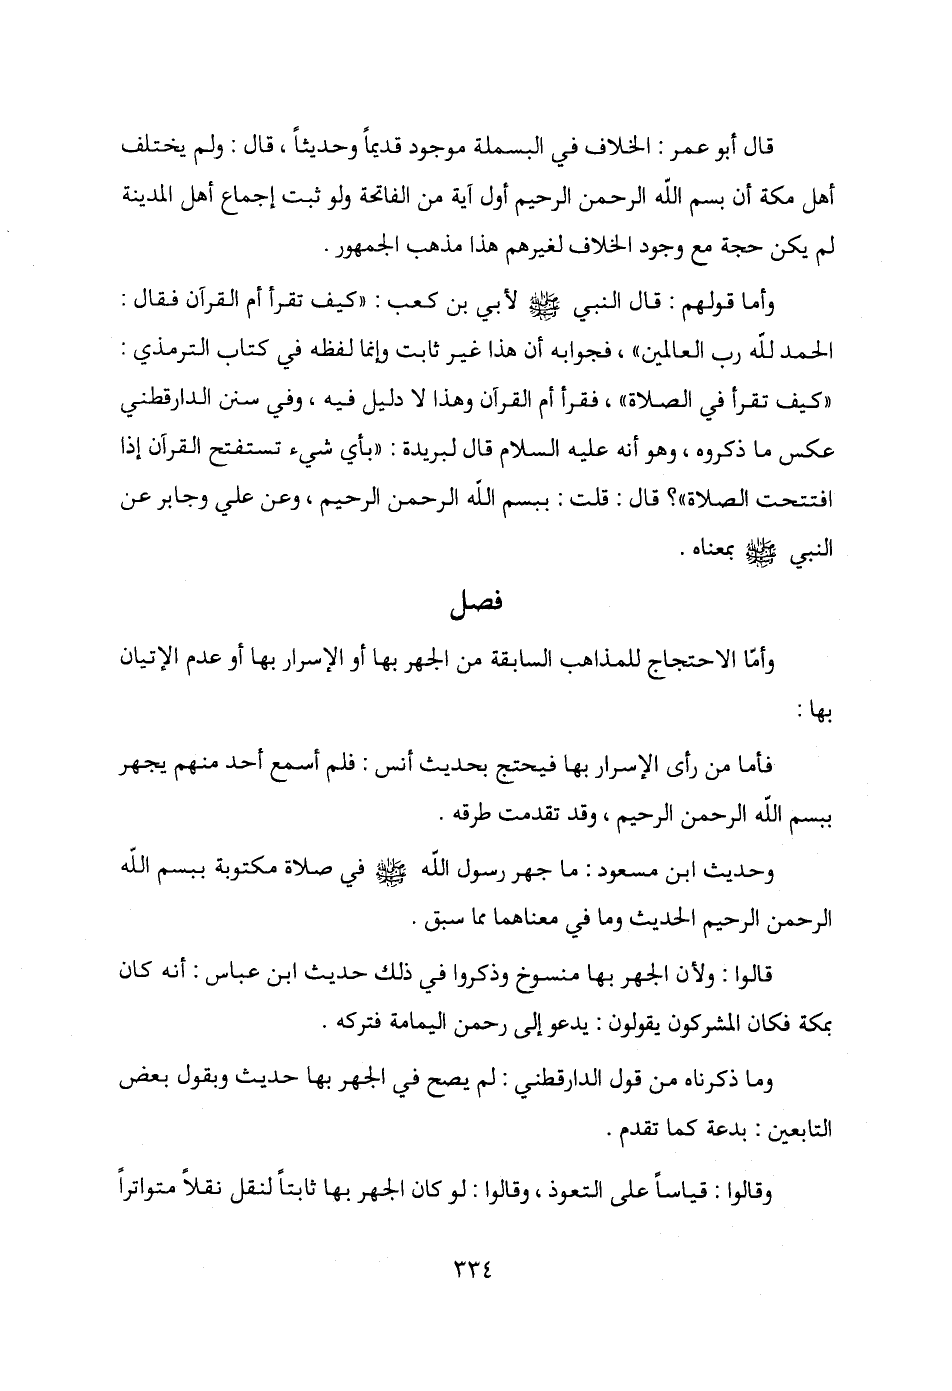 قال أبو عمر : الخلاف في البسملة موجود قديماً وحديثاً ، قال : ولم يختلف
أهل مكة أن بسم اللّه الرحمن الرحيم أول آية من الفاتحة ولو ثبت إجماع أهل المدينة
لم يكن حجة مع وجود الخلاف لغيرهم هذا مذهب الجمهور .
وأما قولهم : قال النبي ﷺ لأبي بن كعب : «كيف تقرأ أم القرآن فقال :
الحمد للّه رب العالمين» ، فجوابه أن هذا غير ثابت وإنما لفظه في كتاب الترمذي :
«كيف تقرأ في الصلاة» ، فقرأ أم القرآن وهذا لا دليل فيه ، وفي سنن الدارقطني
عكس ما ذكروه ، وهو أنه عليه السلام قال لبريدة : «بأي شيء تستفتح القرآن إذا
افتتحت الصلاة»؟ قال : قلت : ببسم اللّه الرحمن الرحيم ، وعن علي وجابر عن
النبي ﷺ بمعناه .
فصل
وأمّا الاحتجاج للمذاهب السابقة من الجهر بها أو الإسرار بها أو عدم الإتيان
بها :
فأما من رأى الإسرار بها فيحتج بحديث أنس : فلم أسمع أحد منهم يجهر
ببسم اللّه الرحمن الرحيم ، وقد تقدمت طرقه .
وحديث ابن مسعود : ما جهر رسول اللّه ﷺ في صلاة مكتوبة ببسم اللّه
الرحمن الرحيم الحديث وما في معناهما مما سبق .
قالوا : ولأن الجهر بها منسوخ وذكروا في ذلك حديث ابن عباس : أنه كان
بمكة فكان المشركون يقولون : يدعو إلى رحمن اليمامة فتركه .
وما ذكرناه من قول الدارقطني : لم يصح في الجهر بها حديث وبقول بعض
التابعين : بدعة كما تقدم .
وقالوا : قياساً على التعوذ ، وقالوا : لو كان الجهر بها ثابتاً لنقل نقلاً متواتراً
٣٣٤